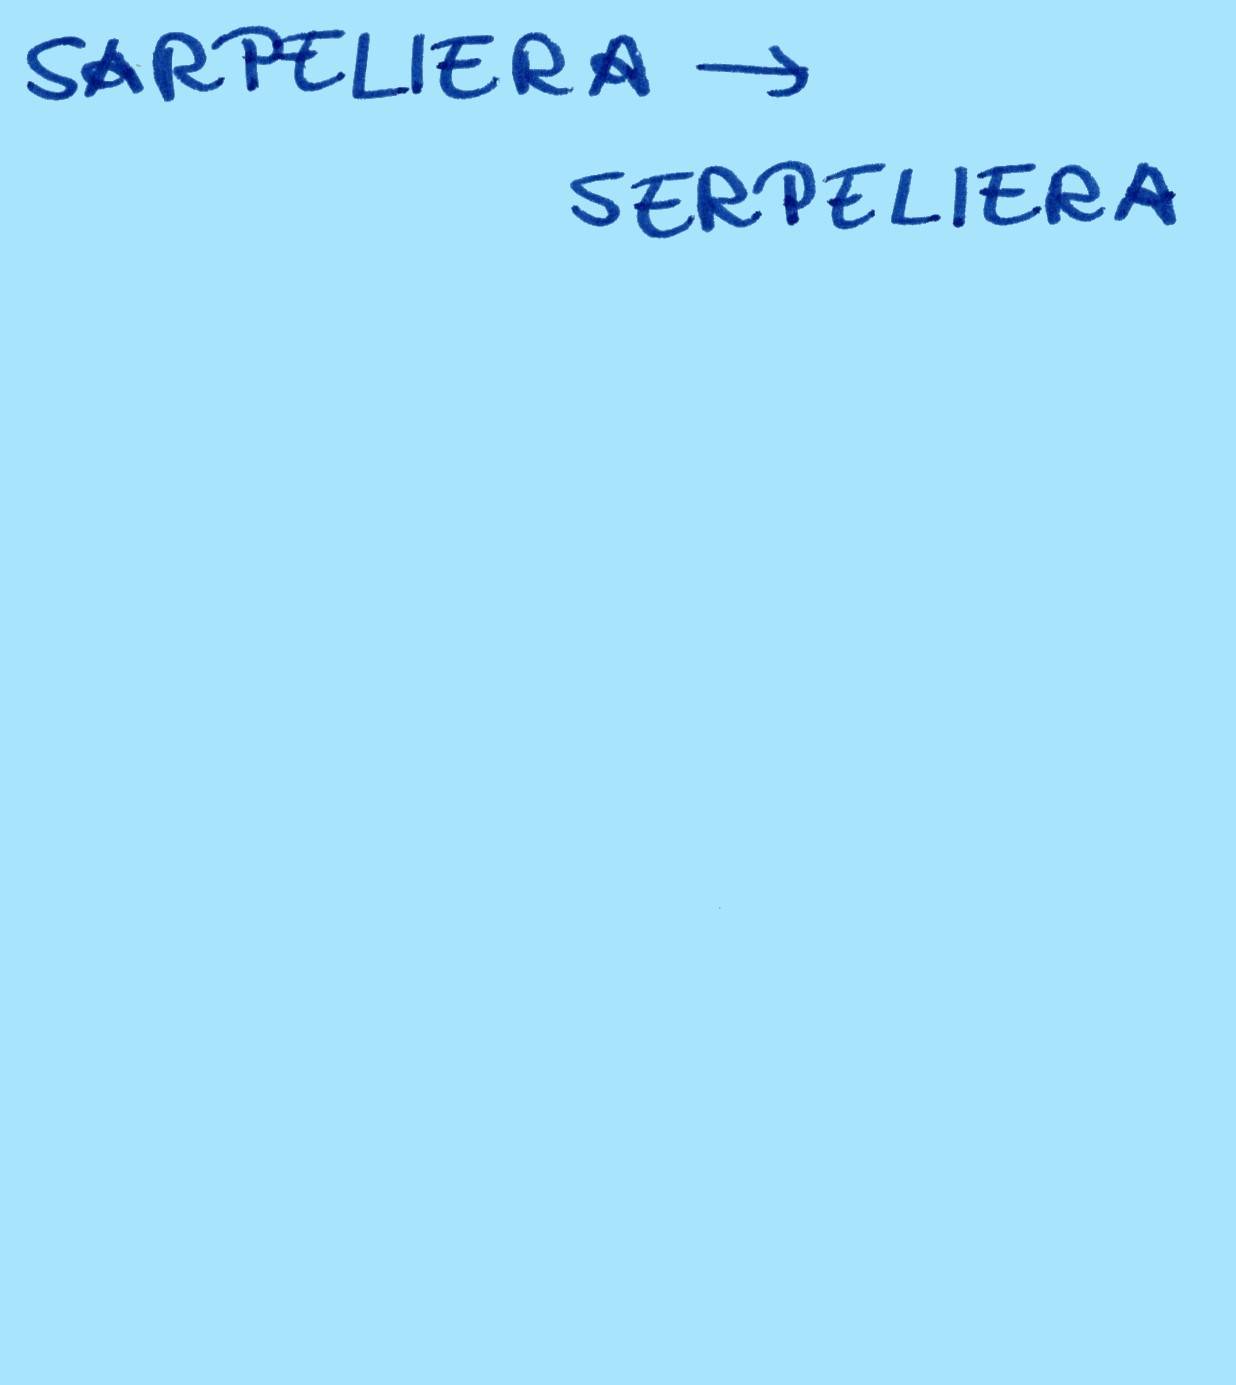 SARPELIERA →
SERPELIERA